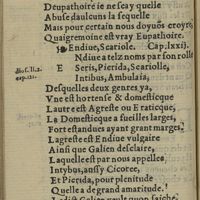 Deupathoire ie ne scay quelle
Abuse daulcuns la sequelle
Mais pour certain nous doyuõs croyre
Quaigremoine est vray Eupathoire.
Endiue, Scariole. Cap. lxxij.
Ndiue a telz noms par son rolle
E Seris, Picrida, Scariolla,
Intibus, Ambulaia,
Desquelles deux genres ya,
Vne est hortense & domesticque
Lautre est Agreste ou Eraticque,
La Domesticque a fueilles larges,
Fort estandues ayant grant marges,
Lagreste est Endiue vulgaire
Ainsi que Galien desclaire,
Laquelle est par nous appellee
Intybus, aussy Cicoree,
Et Picrida, pour plenitude
Quelle a de grand amaritude.